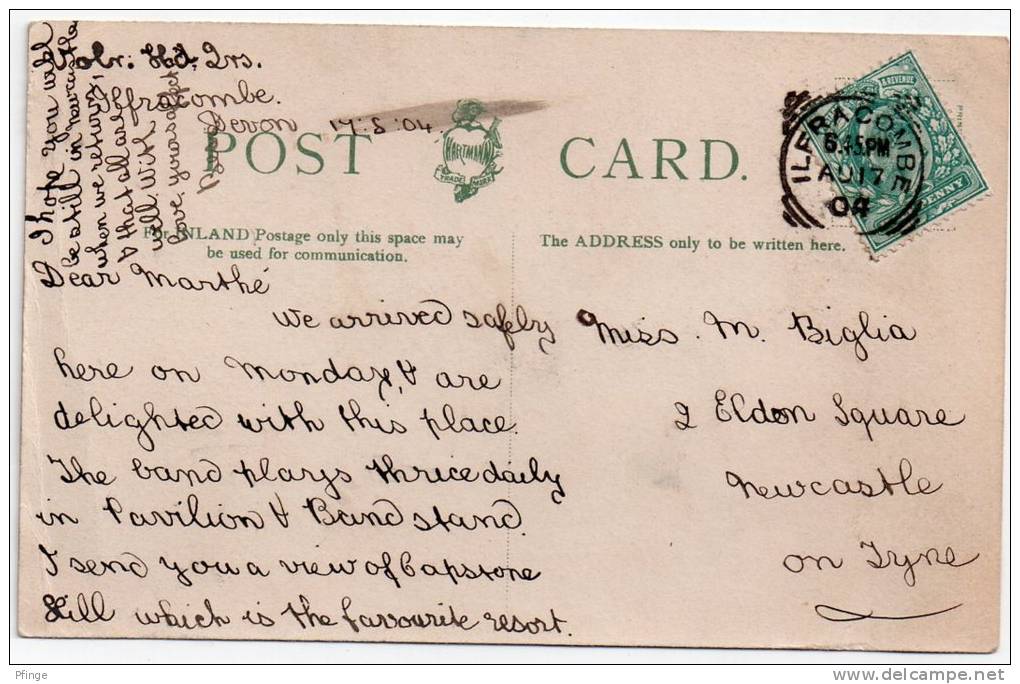 Tolr: Hd. Qrs.
Ilfracombe.
Devon 17.8.04
POST CARD.
HARTMANN
TRADE MARK
ILFRACOMBE
6.45PM
AU 17
04
& REVENUE
PENNY
For INLAND Postage only this space may
be used for communication.
The ADDRESS only to be written here.
Dear Marthé
We arrived safely
here on Monday, & are
delighted with this place.
The band plays thrice daily
in Pavilion & Band stand.
I send you a view of Capstone
Hill which is the favourite resort.
I hope you will
be still in Newcastle
when we return,
& that all are
well With
love, yours affect.
Miss. M. Biglia
2 Eldon Square
Newcastle
on Tyne
Pfinge
www.delcampe.net